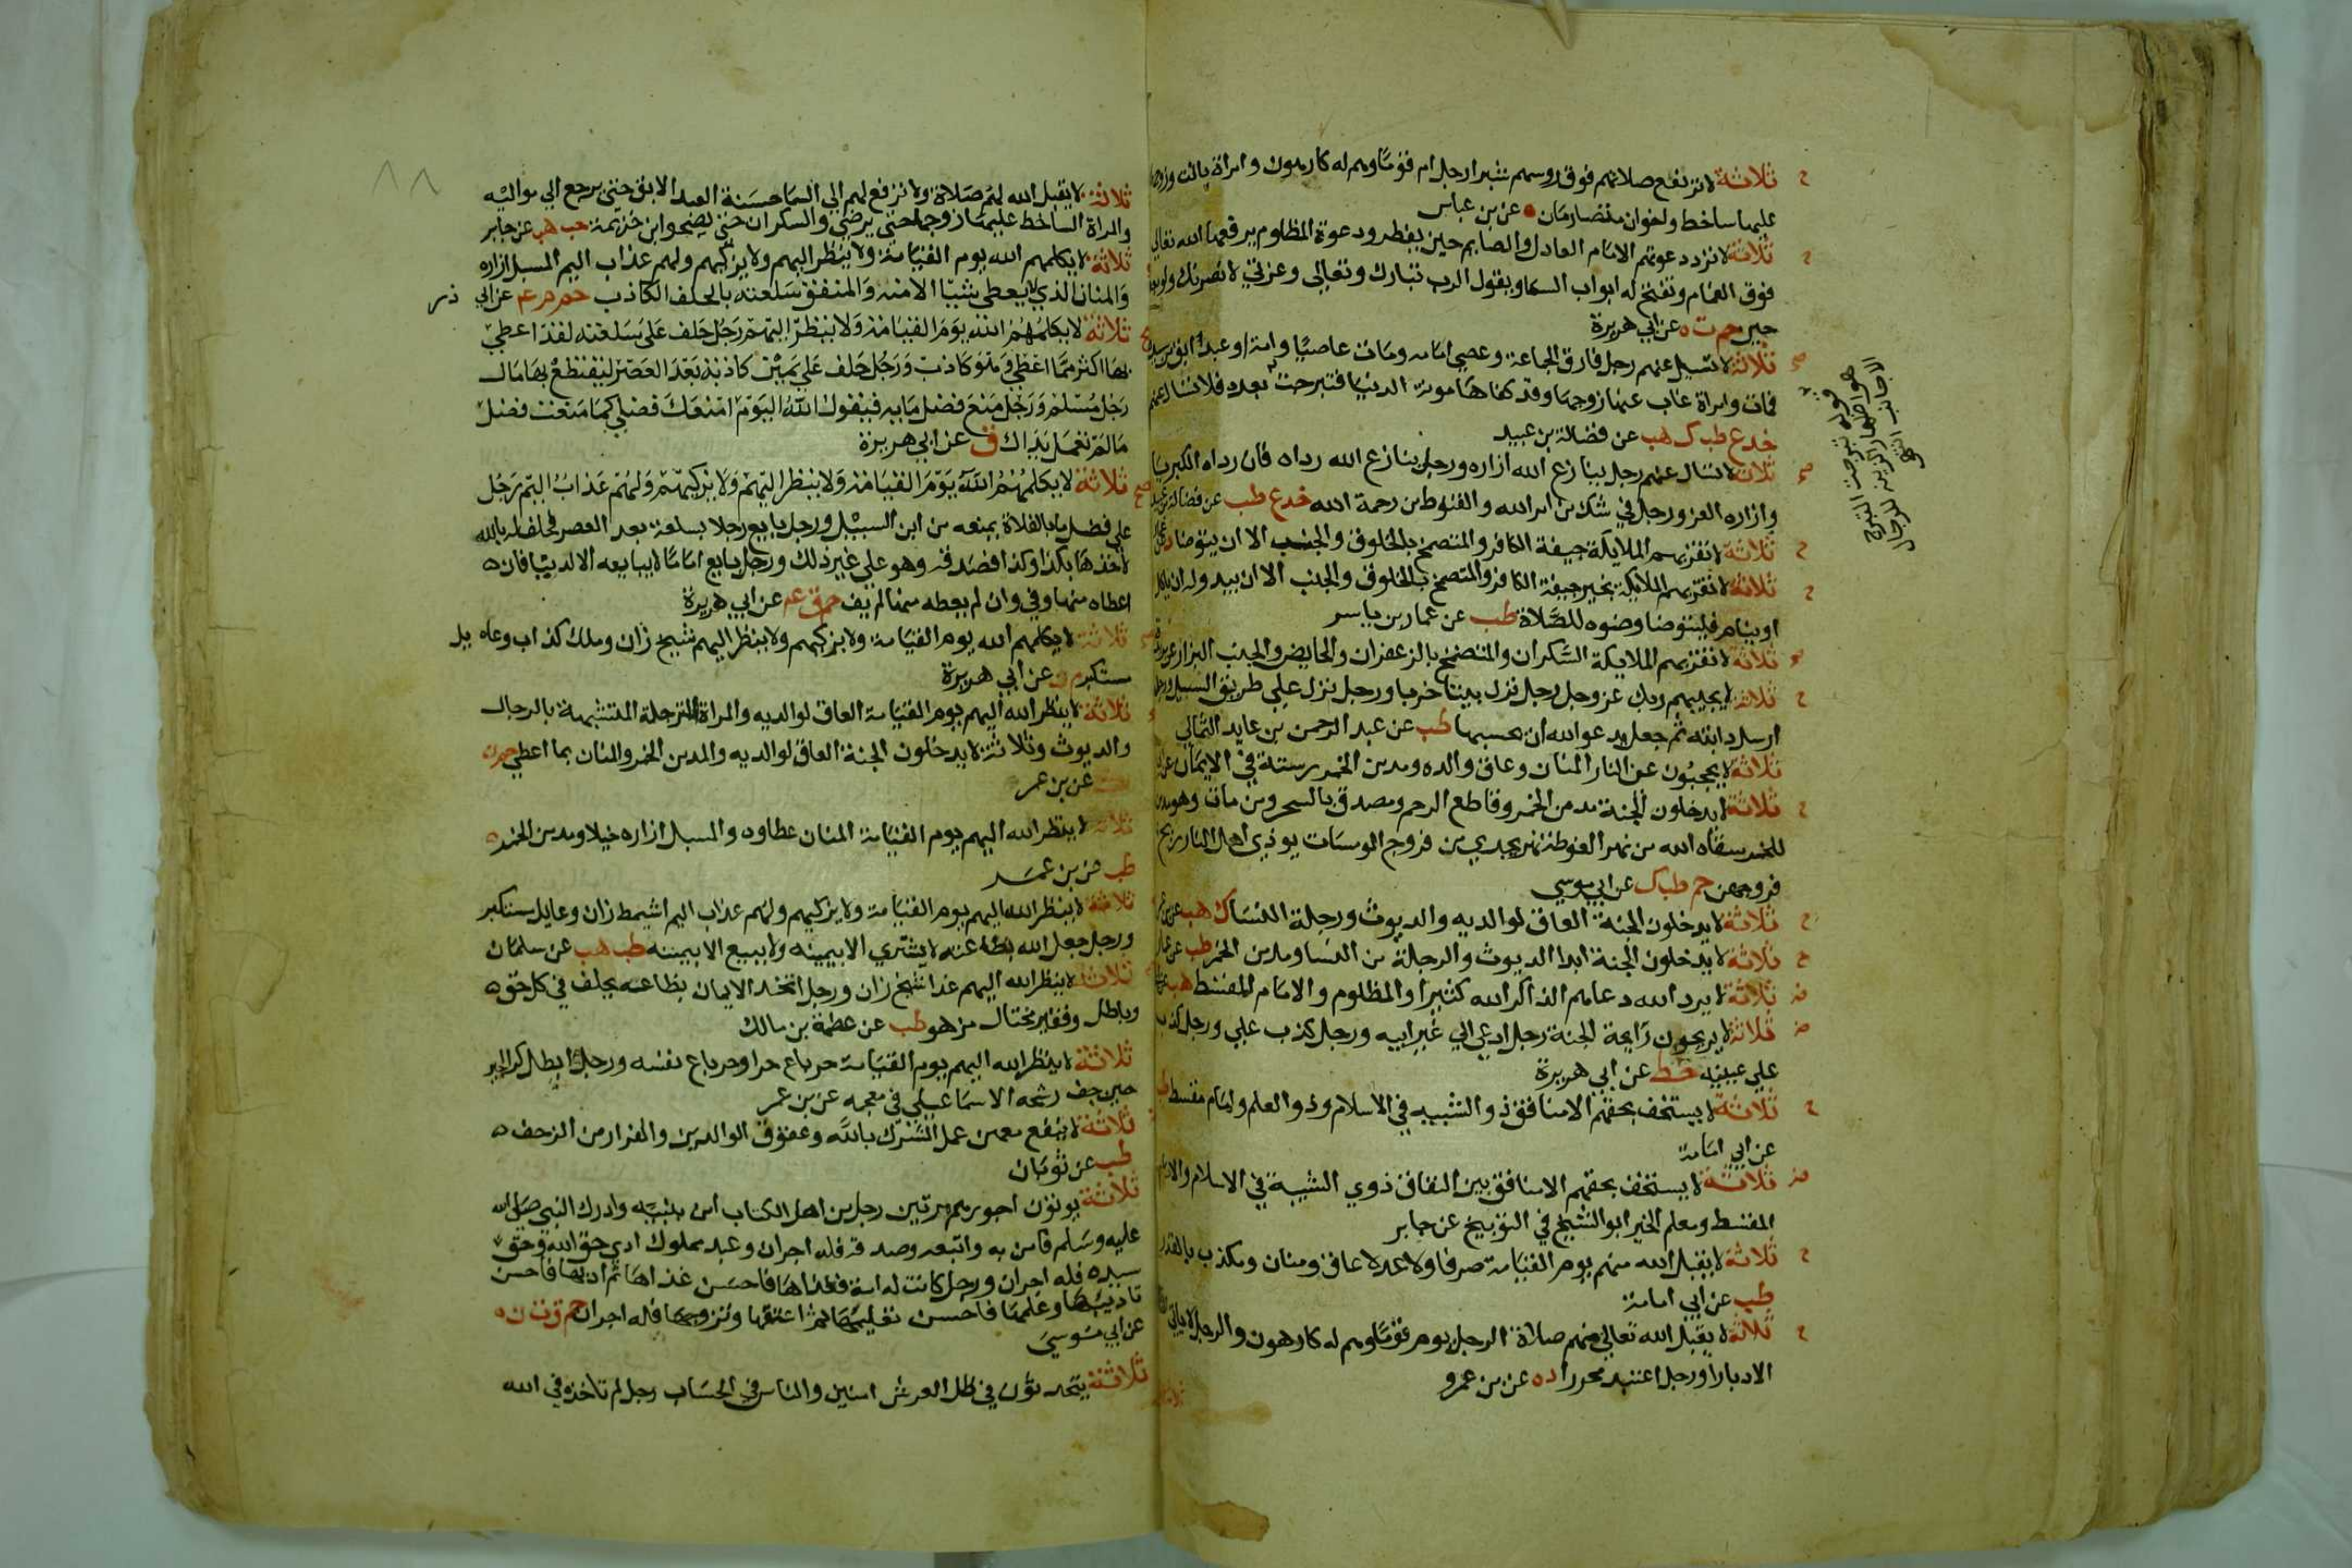 ثلاثة لا ترتفع صلاتهم فوق روسهم شبرا رجل ام قوما وهم له كارهون وامراة باتت وزوجها
عليها ساخط واخوان متصارمان ه عن بن عباس
ثلاثة لا ترد دعوتهم الامام العادل والصايم حين يفطر ودعوة المظلوم يرفعها الله تعالى
فوق الغمام وتفتح له ابواب السما ويقول الرب تبارك وتعالى وعزتي لانصرنك ولو بعد
حين حم ت ه عن ابي هريرة
ثلاثة لا تسيل عنهم رجل فارق الجماعة وعصى امامه ومات عاصيا وامة او عبد ابق من سيده
فمات وامراة غاب عنها زوجها وقد كفاها مونة الدنيا فتبرجت بعده فلا تسال عنهم
خد ع طب ك هب عن فضالة بن عبيد
ثلاثة لا تسال عنهم رجل ينازع الله ازاره ورجل ينازع الله رداه فان رداه الكبريا
وازاره العز ورجل في شك من امر الله والقنوط من رحمة الله خد ع طب عن فضالة بن عبيد
ثلاثة لا تقربهم الملايكة جيفة الكافر والمتضمخ بالخلوق والجنب الا ان يتوضا د عن
ثلاثة لا تقربهم الملايكة بخير جيفة الكافر والمتضمخ بالخلوق والجنب الا ان يبدو له ان ياكل
او ينام فليتوضا وضوه للصلاة طب عن عمار بن ياسر
ثلاثة لا تقربهم الملايكة السكران والمتضمخ بالزعفران والحايض والجنب البزار عن بريدة
ثلاثة لا يجيبهم ربك عز وجل رجل نزل بيتا خربا ورجل نزل على طريق السبيل ورجل
ارسل دابته ثم جعل يدعو الله ان يحبسها طب عن عبد الرحمن بن عايد الثمالي
ثلاثة لا يحجبون عن النار المنان وعاق والده ومدمن الخمر رسته في الايمان عن
ثلاثة لا يدخلون الجنة مدمن الخمر وقاطع الرحم ومصدق بالسحر ومن مات وهو مدمن
للخمر سقاه الله من نهر الغوطة نهر يجري من فروج المومسات يوذي اهل النار ريح
فروجهن حم طب ك عن ابي موسي
ثلاثة لا يدخلون الجنة العاق لوالديه والديوث ورجلة النسا ك هب عن بن عمر
ثلاثة لا يدخلون الجنة ابدا الديوث والرجلة من النسا ومدمن الخمر طب عن عمار
ثلاثة لا يرد الله دعاهم الذاكر الله كثيرا والمظلوم والامام المقسط هب
ثلاثة لا يريحون رايحة الجنة رجل ادعى الي غير ابيه ورجل كذب علي ورجل كذب
على عينيه خط عن ابي هريرة
ثلاثة لا يستخف بحقهم الا منافق ذو الشيبه في الاسلام وذو العلم وامام مقسط طب
عن ابي امامة
ثلاثة لا يستخف بحقهم الا منافق بين النفاق ذوي الشيبة في الاسلام والامام
المقسط ومعلم الخير ابو الشيخ في التوبيخ عن جابر
ثلاثة لا يقبل الله منهم يوم القيامة صرفا ولا عدلا عاق ومنان ومكذب بالقدر
طب عن ابي امامة
ثلاثة لا يقبل الله تعالى منهم صلاة الرجل يوم قوما وهم له كارهون والرجل لا ياتي
الا دبارا ورجل اعتبد محررا د ه عن بن عمرو
قوله تبرجت التبرج
هو اظهار الزينة للرجال
الاجانب انتهى
٨٨
ثلاثة لا يقبل الله لهم صلاة ولا ترفع لهم الي السما حسنة العبد الابق حتى يرجع الي مواليه
والمراة الساخط عليها زوجها حتى يرضى والسكران حتى يصحو ابن خزيمة حب هب عن جابر
ثلاثة لا يكلمهم الله يوم القيامة ولا ينظر اليهم ولا يزكيهم ولهم عذاب اليم المسبل ازاره
والمنان الذي لا يعطي شيئا الا منه والمنفق سلعته بالحلف الكاذب حم م عم عن ابي ذر
ثلاثة لا يكلمهم الله يوم القيامة ولا ينظر اليهم رجل حلف على سلعته لقد اعطي
بها اكثر مما اعطي وهو كاذب ورجل حلف على يمين كاذبة بعد العصر ليقتطع بها مال
رجل مسلم ورجل منع فضل مايه فيقول الله اليوم امنعك فضلي كما منعت فضل
ما لم تعمل يداك ق عن ابي هريرة
ثلاثة لا يكلمهم الله يوم القيامة ولا ينظر اليهم ولا يزكيهم ولهم عذاب اليم رجل
على فضل ما بالفلاة يمنعه من ابن السبيل ورجل بايع رجلا بسلعة بعد العصر فحلف له بالله
لاخذها بكذا وكذا فصدقه وهو على غير ذلك ورجل بايع اماما لا يبايعه الا لدنيا فان ه
اعطاه منها وفي وان لم يعطه منها لم يف حم ق عم عن ابي هريرة
ثلاثة لا يكلمهم الله يوم القيامة ولا يزكيهم ولا ينظر اليهم شيخ زان وملك كذاب وعايل
مستكبر م ن عن ابي هريرة
ثلاثة لا ينظر الله اليهم يوم القيامة العاق لوالديه والمراة المترجلة المتشبهة بالرجال
والديوث وثلاثة لا يدخلون الجنة العاق لوالديه والمدمن الخمر والمنان بما اعطي حم ن
عن بن عمر
ثلاثة لا ينظر الله اليهم يوم القيامة المنان عطاوه والمسبل ازاره خيلا ومدمن الخمر ه
طب عن بن عمر
ثلاثة لا ينظر الله اليهم يوم القيامة ولا يزكيهم ولهم عذاب اليم اشيمط زان وعايل مستكبر
ورجل جعل الله بضاعته لا يشتري الا بيمينه ولا يبيع الا بيمينه طب هب عن سلمان
ثلاثة لا ينظر الله اليهم غدا شيخ زان ورجل اتخذ الايمان بضاعه يحلف في كل حق ه
وباطل وفقير مختال مزهو طب عن عصمة بن مالك
ثلاثة لا ينظر الله اليهم يوم القيامة حر باع حرا وحر باع نفسه ورجل ابطل كرا اجير
حين جف رشحه الاسماعيلي في معجمه عن بن عمر
ثلاثة لا ينفع معهن عمل الشرك بالله وعقوق الوالدين والفرار من الزحف ه
طب عن ثوبان
ثلاثة يوتون اجورهم مرتين رجل من اهل الكتاب امن بنبيه وادرك النبي صلى الله
عليه وسلم فامن به واتبعه وصدقه فله اجران وعبد مملوك ادي حق الله وحق
سيده فله اجران ورجل كانت له امة فغذاها فاحسن غذاها ثم ادبها فاحسن
تاديبها وعلمها فاحسن تعليمها ثم اعتقها وتزوجها فله اجران حم ق ت ن ه
عن ابي موسي
ثلاثة يتحدثون في ظل العرش امنين والناس في الحساب رجل لم تاخذه في الله